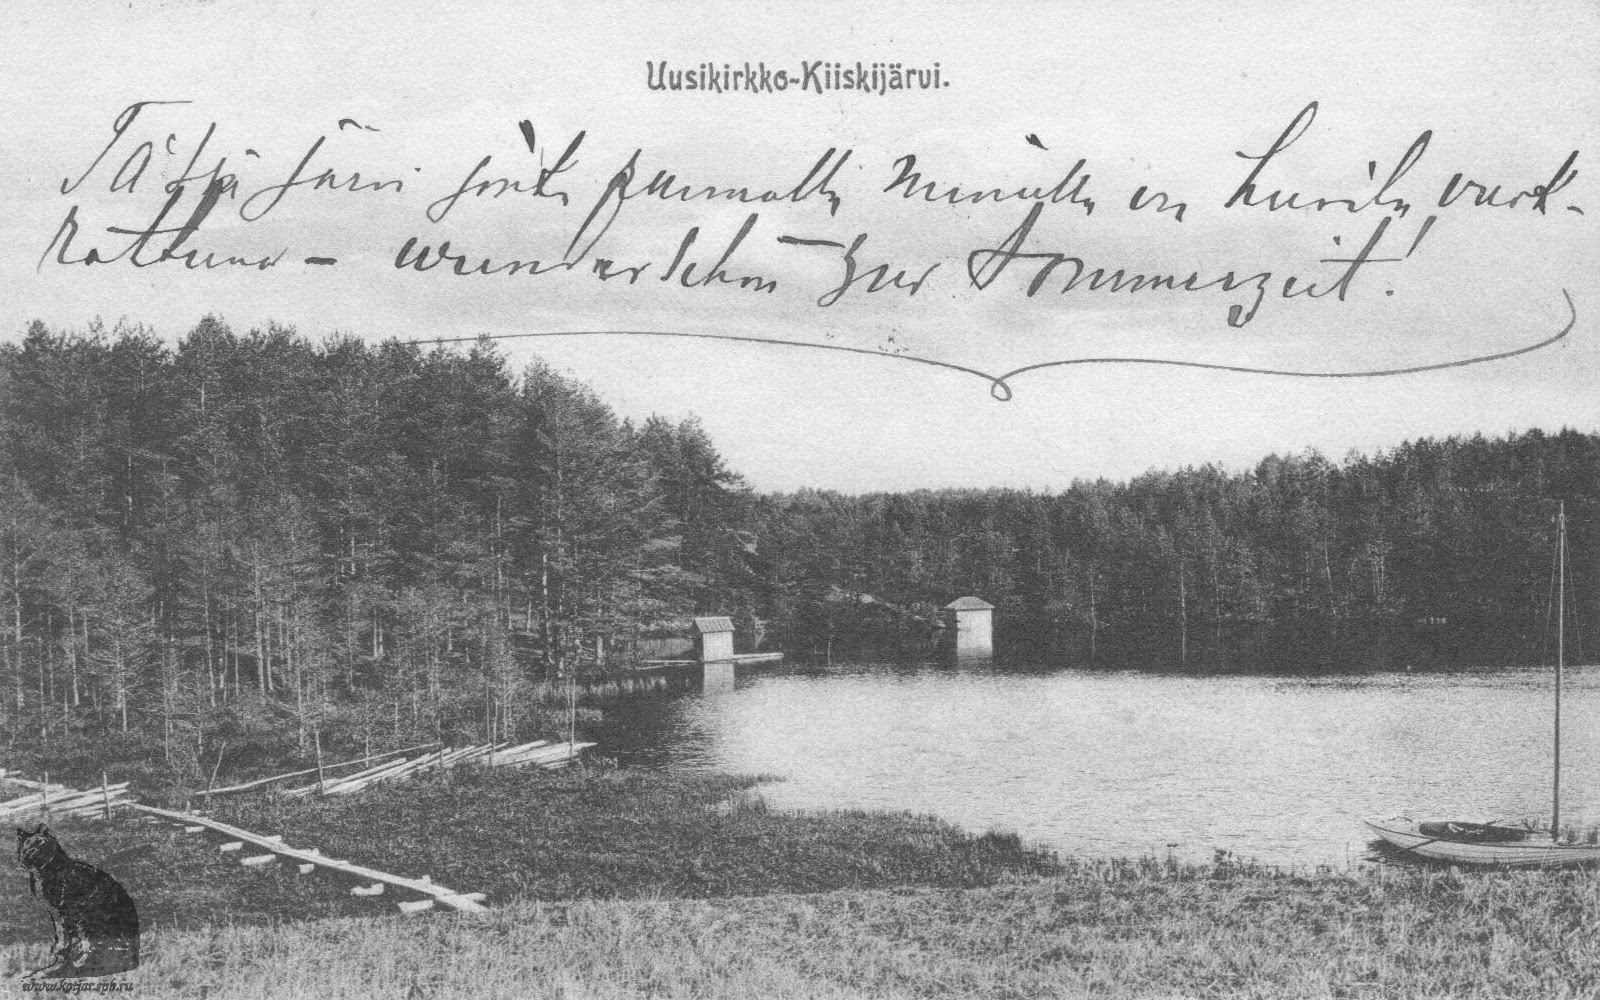 Uusikirkko-Kiiskijärvi.
Tässä järvi jonka rannalla Minulla on huvila vuok-
rattuna – wunderschön zur Sommerzeit!
www.kotjar.spb.ru